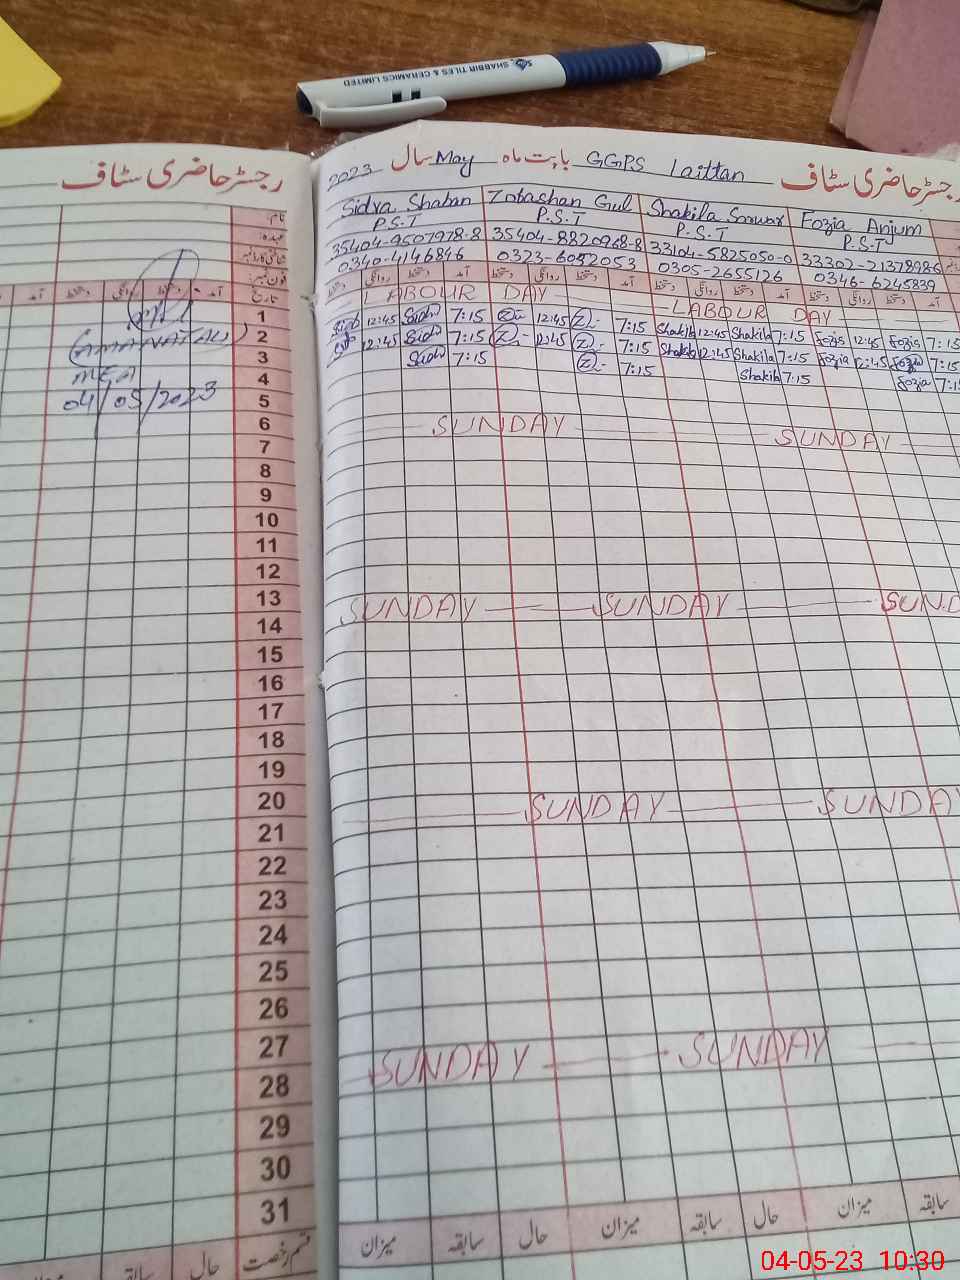 SHABBIR TILES & CERAMICS LIMITED
رجسٹر حاضری سٹاف
رجسٹر حاضری سٹاف GGPS Laittan بابت ماہ May سال 2023
نام
عہدہ
شناختی کارڈ نمبر
فون نمبر
Sidra Shaban Zobashan Gul Shakila Sarwar Fozia Anjum
P.S.T P.S.T P.S.T P.S.T
35404-9507978-8 35404-8820968-8 33104-5825050-0 33302-2137898-6
0340-4146846 0323-6052053 0305-2655126 0346-6245839
آمد دستخط روانگی دستخط آمد تاریخ
دستخط روانگی دستخط آمد دستخط روانگی دستخط آمد دستخط روانگی دستخط آمد دستخط روانگی دستخط آمد
1 LABOUR DAY LABOUR DAY
2 12:45 Sidr 7:15 12:45 7:15 Shakila 12:45 Shakila 7:15 Fozia 12:45 Fozia 7:15
3 12:45 Sidr 7:15 12:45 7:15 Shakila 12:45 Shakila 7:15 Fozia 12:45 Fozia 7:15
4 Sidr 7:15 7:15 Shakila 7:15 Fozia 7:15
(AMANAT ALI)
MEA
04/05/2023
5
6
7 SUNDAY SUNDAY
8
9
10
11
12
13
14 SUNDAY SUNDAY SUND
15
16
17
18
19
20
21 SUNDAY SUNDAY
22
23
24
25
26
27
28 SUNDAY SUNDAY
29
30
31
قسم رخصت حال سابقہ میزان
میزان سابقہ حال میزان سابقہ حال میزان سابقہ
04-05-23 10:30